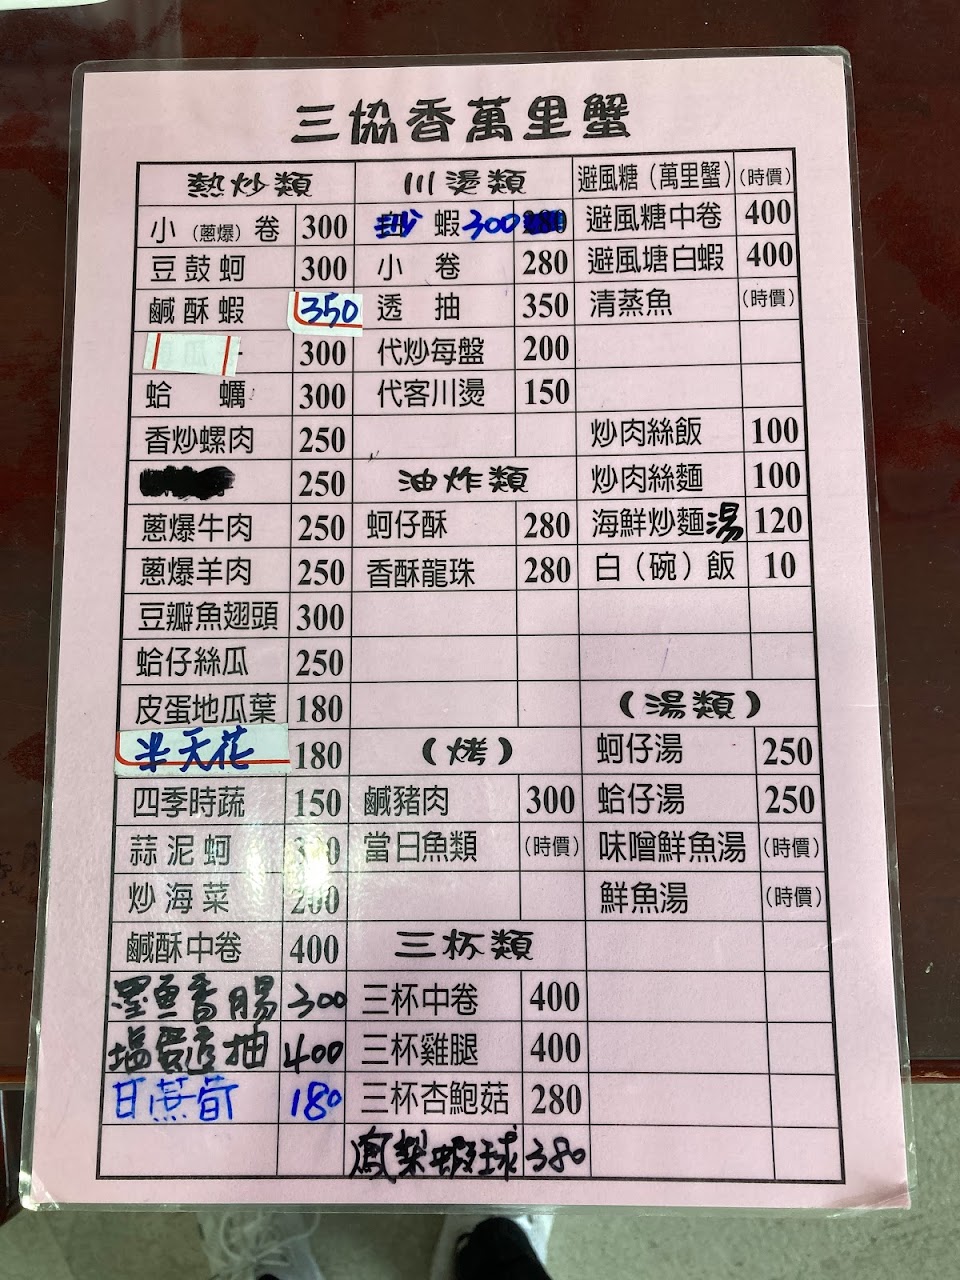 三協香萬里蟹
熱炒類
小（蔥爆）卷 300
豆鼓蚵 300
鹹酥蝦 350
300
蛤蠣 300
香炒螺肉 250
250
蔥爆牛肉 250
蔥爆羊肉 250
豆瓣魚翅頭 300
蛤仔絲瓜 250
皮蛋地瓜葉 180
半天花 180
四季時蔬 150
蒜泥蚵 300
炒海菜 200
鹹酥中卷 400
墨魚香腸 300
塩蛋透抽 400
甘蔗筍 180
川燙類
蝦 300
小卷 280
透抽 350
代炒每盤 200
代客川燙 150
油炸類
蚵仔酥 280
香酥龍珠 280
（烤）
鹹豬肉 300
當日魚類（時價）
三杯類
三杯中卷 400
三杯雞腿 400
三杯杏鮑菇 280
鳳梨蝦球 380
避風糖（萬里蟹）（時價）
避風糖中卷 400
避風塘白蝦 400
清蒸魚（時價）
炒肉絲飯 100
炒肉絲麵 100
海鮮炒麵湯 120
白（碗）飯 10
（湯類）
蚵仔湯 250
蛤仔湯 250
味噌鮮魚湯（時價）
鮮魚湯（時價）